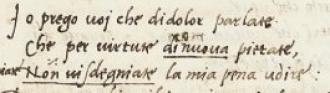 Io prego uoj che didolor parlate
Che per virtute di nuoua pietate,
Non uisdegniate la mia pena udire: